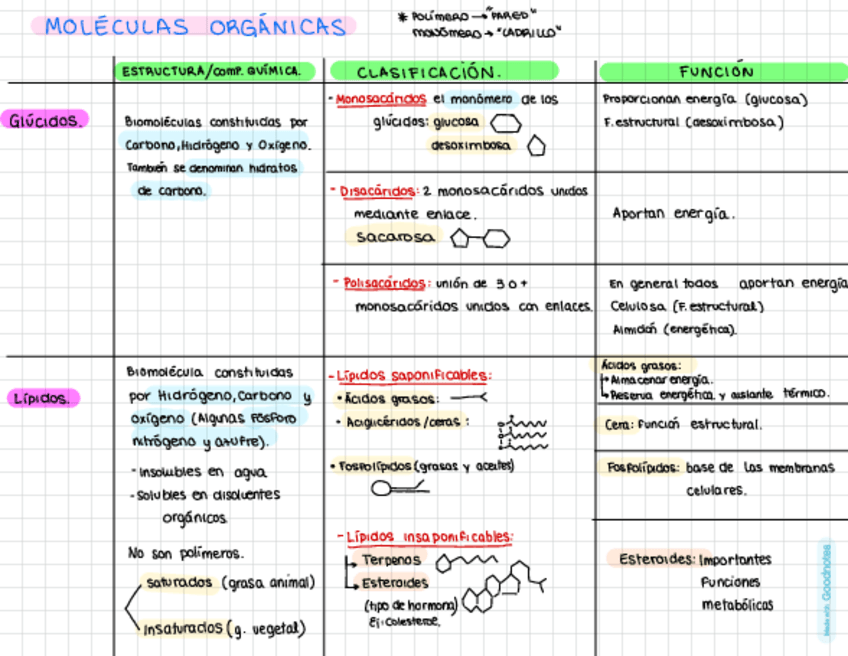 MOLÉCULAS ORGÁNICAS
* POLÍMERO → "PARED"
MONÓMERO → "LADRILLO"
ESTRUCTURA/COMP. QUÍMICA.
CLASIFICACIÓN.
FUNCIÓN
Glúcidos.
Biomoléculas constituidas por
Carbono, Hidrógeno y Oxígeno.
También se denominan hidratos
de carbono.
- Monosacáridos el monómero de los
glúcidos: glucosa
desoxirribosa
Proporcionan energía (glucosa)
F. estructural (desoxirribosa)
- Disacáridos: 2 monosacáridos unidos
mediante enlace.
sacarosa
Aportan energía.
- Polisacáridos: unión de 3 o +
monosacáridos unidos con enlaces.
En general todos aportan energía
Celulosa (F. estructural)
Almidón (energética).
Lípidos.
Biomolécula constituidas
por Hidrógeno, Carbono y
oxígeno (Algunas FÓSFORO
nitrógeno y azufre).
- Insolubles en agua
- Solubles en disolventes
orgánicos
No son polímeros.
saturados (grasa animal)
Insaturados (g. vegetal)
- Lípidos saponificables:
• Ácidos grasos:
• Acilglicéridos/ceras:
• Fosfolípidos (grasas y aceites)
- Lípidos insaponificables:
Terpenos
Esteroides
(tipo de hormona)
Ej: Colesterol.
Ácidos grasos:
Almacenar energía.
Reserva energética y aislante térmico.
Cera: Función estructural.
Fosfolípidos: base de las membranas
celulares.
Esteroides: Importantes
Funciones
metabólicas
Made with Goodnotes